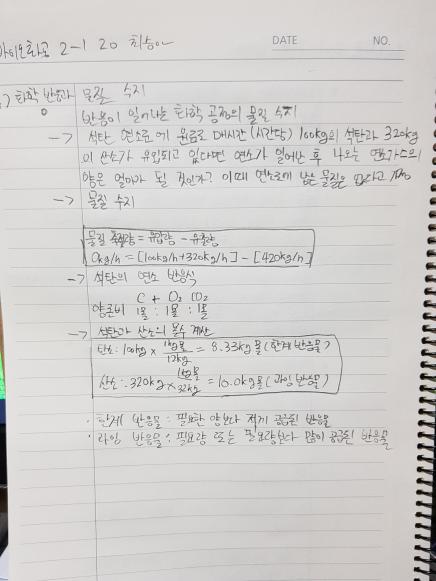 바이오화공 2-1 20 최승아
DATE NO.
화학 반응과 물질 수지
반응이 일어나는 화학 공정의 물질 수지
-> 석탄 연소로에 원료로 매시간(시간당) 100kg의 석탄과 320kg
의 산소가 유입되고 있다면 연소가 일어난 후 나오는 연소가스의
양은 얼마가 될 것인가? 이때 연소로에 남은 물질은 없다고 가정
-> 물질 수지
물질 축적량 = 유입량 - 유출량
0kg/h = [100kg/h+320kg/h] - [420kg/h]
-> 석탄의 연소 반응식
C + O₂ CO₂
양론비 1몰 : 1몰 : 1몰
-> 석탄과 산소의 몰수 계산
탄소: 100kg × 1kg몰/12kg = 8.33kg몰(한계 반응물)
산소: 320kg × 1kg몰/32kg = 10.0kg몰(과잉 반응물)
· 한계 반응물 : 필요한 양보다 적게 공급된 반응물
· 과잉 반응물 : 필요량 또는 필요량보다 많이 공급된 반응물